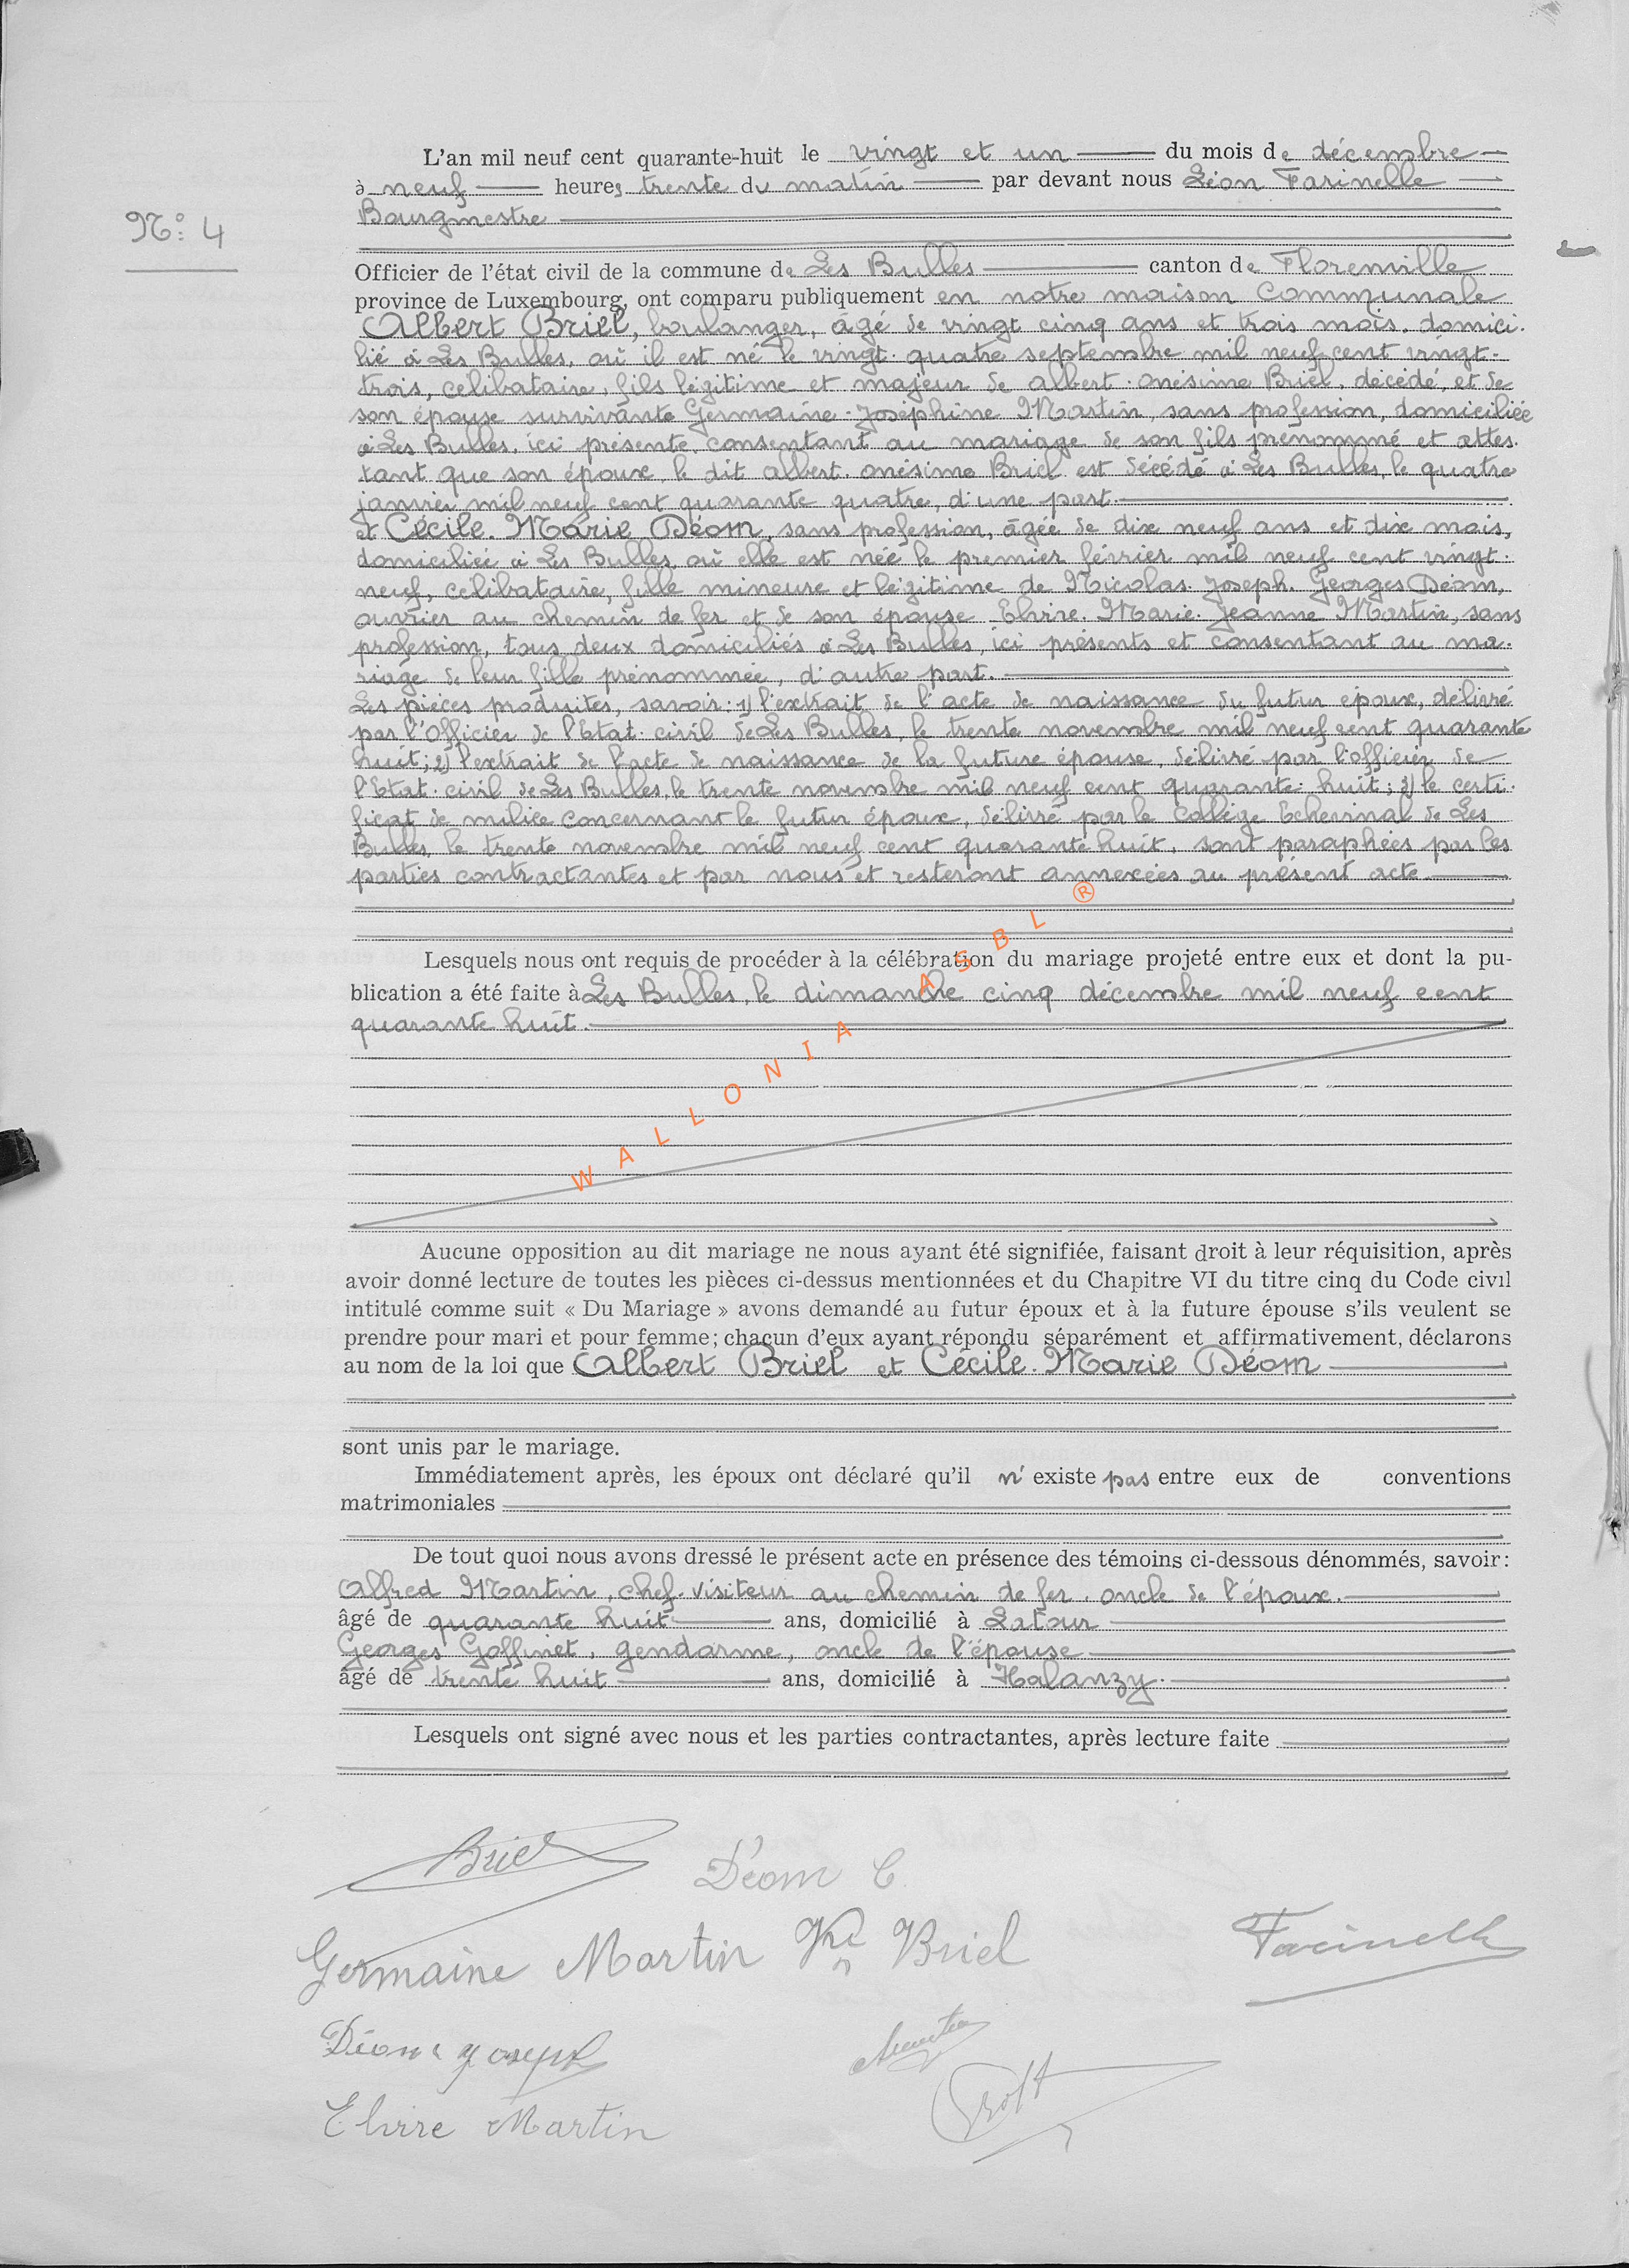 N° 4
L'an mil neuf cent quarante-huit le vingt et un du mois de décembre
à neuf heures trente du matin par devant nous Léon Farinelle
Bourgmestre
Officier de l'état civil de la commune de Les Bulles canton de Florenville
province de Luxembourg, ont comparu publiquement en notre maison communale
Albert Briel, boulanger, âgé de vingt cinq ans et trois mois, domici-
lié à Les Bulles, où il est né le vingt-quatre septembre mil neuf cent vingt-
trois, célibataire, fils légitime et majeur de Albert-Onésime Briel, décédé, et de
son épouse survivante Germaine-Joséphine Martin, sans profession, domiciliée
à Les Bulles, ici présente consentant au mariage de son fils prénommé et attes-
tant que son époux, le dit Albert-Onésime Briel est décédé à Les Bulles, le quatre
janvier mil neuf cent quarante quatre, d'une part.
et Cécile-Marie Déom, sans profession, âgée de dix neuf ans et dix mois,
domiciliée à Les Bulles où elle est née le premier février mil neuf cent vingt-
neuf, célibataire, fille mineure et légitime de Nicolas-Joseph-Georges Déom,
ouvrier au chemin de fer et de son épouse Elvire-Marie-Jeanne Martin, sans
profession, tous deux domiciliés à Les Bulles, ici présents et consentant au ma-
riage de leur fille prénommée, d'autre part.
Les pièces produites, savoir: 1) l'extrait de l'acte de naissance du futur époux, délivré
par l'Officier de l'Etat-civil de Les Bulles, le trente novembre mil neuf cent quarante
huit; 2) l'extrait de l'acte de naissance de la future épouse, délivré par l'officier de
l'Etat-civil de Les Bulles, le trente novembre mil neuf cent quarante-huit; 3) le certi-
ficat de milice concernant le futur époux, délivré par le Collège Echevinal de Les
Bulles, le trente novembre mil neuf cent quarante huit, sont paraphées par les
parties contractantes et par nous et resteront annexées au présent acte.
Lesquels nous ont requis de procéder à la célébration du mariage projeté entre eux et dont la pu-
blication a été faite à Les Bulles, le dimanche cinq décembre mil neuf cent
quarante huit.
WALLONIA ASBL ®
Aucune opposition au dit mariage ne nous ayant été signifiée, faisant droit à leur réquisition, après
avoir donné lecture de toutes les pièces ci-dessus mentionnées et du Chapitre VI du titre cinq du Code civil
intitulé comme suit « Du Mariage » avons demandé au futur époux et à la future épouse s'ils veulent se
prendre pour mari et pour femme; chacun d'eux ayant répondu séparément et affirmativement, déclarons
au nom de la loi que Albert Briel et Cécile-Marie Déom
sont unis par le mariage.
Immédiatement après, les époux ont déclaré qu'il n'existe pas entre eux de conventions
matrimoniales
De tout quoi nous avons dressé le présent acte en présence des témoins ci-dessous dénommés, savoir:
Alfred Martin, chef-visiteur au chemin de fer, oncle de l'époux.
âgé de quarante huit ans, domicilié à Latour
Georges Goffinet, gendarme, oncle de l'épouse
âgé de trente huit ans, domicilié à Halanzy.
Lesquels ont signé avec nous et les parties contractantes, après lecture faite
Briel
Déom C.
Germaine Martin Vve Briel
Farinelle
Déom Joseph
Elvire Martin